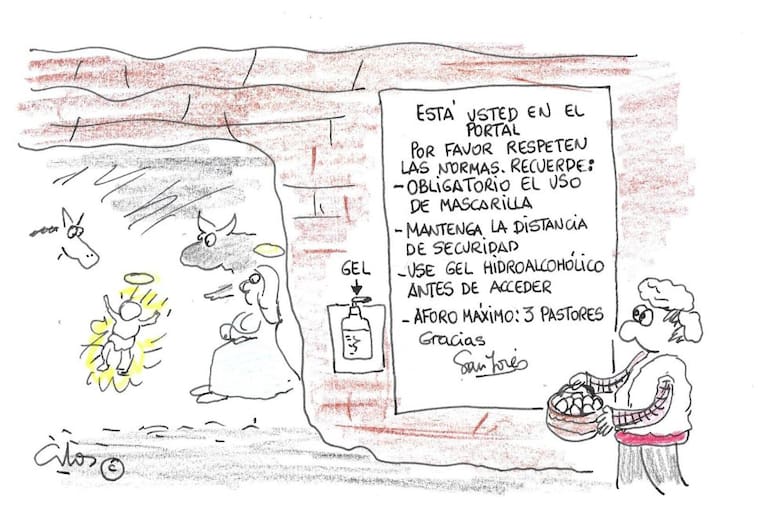 ESTÁ USTED EN EL
PORTAL
POR FAVOR RESPETEN
LAS NORMAS. RECUERDE:
- OBLIGATORIO EL USO
DE MASCARILLA
- MANTENGA LA DISTANCIA
DE SEGURIDAD
- USE GEL HIDROALCOHÓLICO
ANTES DE ACCEDER
- AFORO MÁXIMO: 3 PASTORES
Gracias
San José
GEL